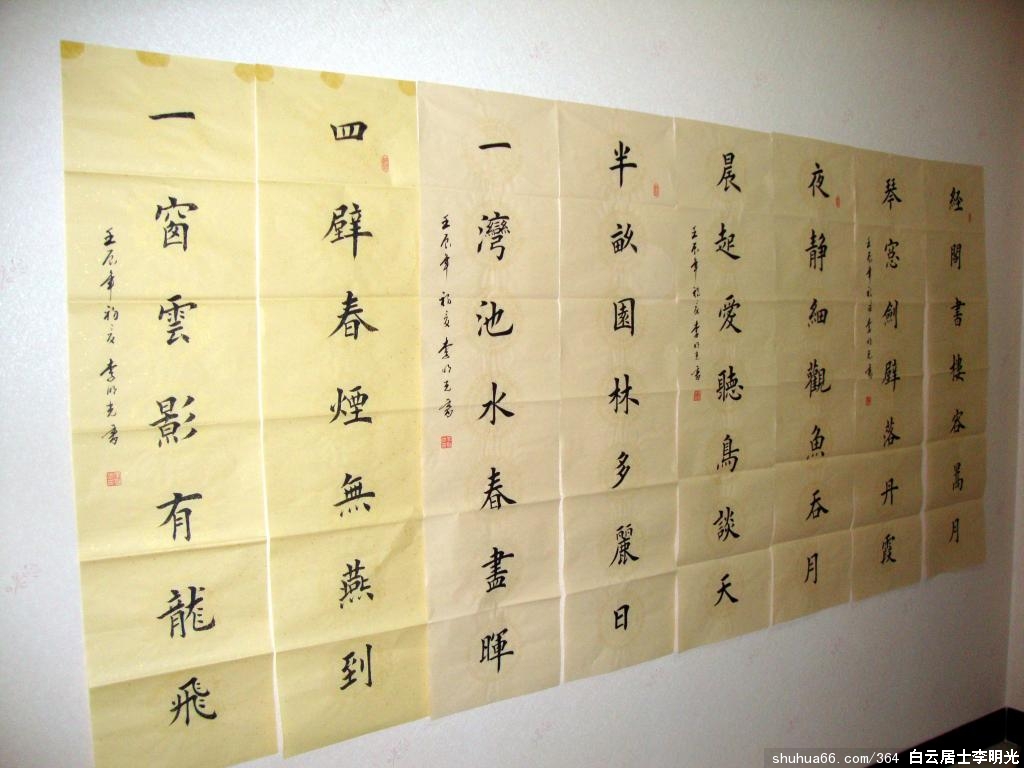 經閣書樓容暠月
琴窓劍壁落丹霞
壬辰年初夏 李明光書
夜静細觀魚吞月
晨起愛聽鳥談天
壬辰年初夏 李明光書
半畝園林多麗日
一灣池水春盡暉
壬辰年初夏 李明光書
四壁春煙無燕到
一窗雲影有龍飛
壬辰年初夏 李明光書
shuhua66.com/364 白云居士李明光